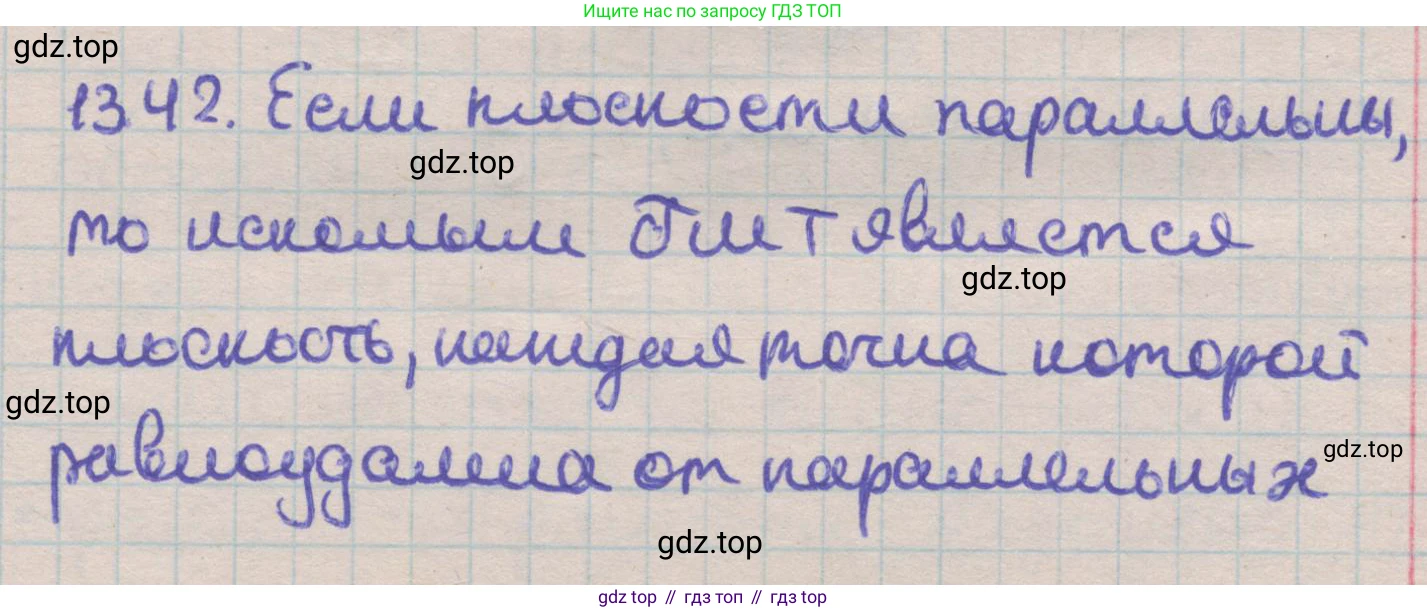 Ищите нас по запросу ГДЗ ТОП
gdz.top
13.42. Если плоскости параллельны,
gdz.top
то искомым ГМТ является
gdz.top
плоскость, каждая точка которой
gdz.top
равноудалена от параллельных
gdz.top
gdz.top
gdz top // гдз топ // гдз top